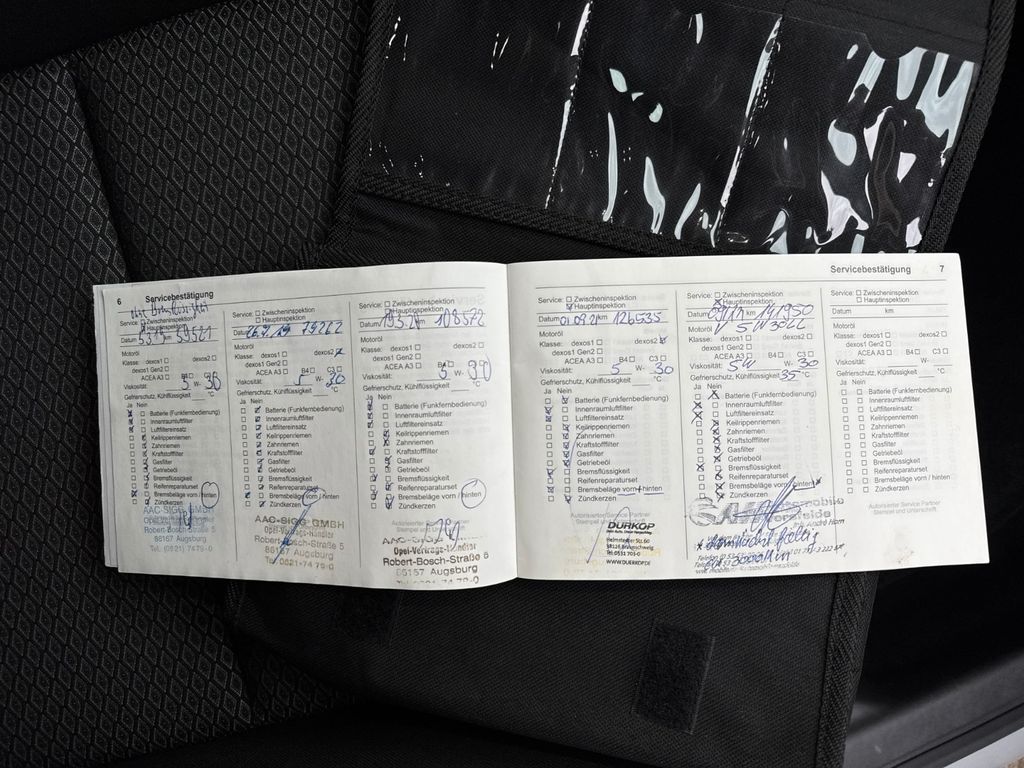 6 Servicebestätigung
Service: Zwischeninspektion
Hauptinspektion
Datum km 59521
Motoröl
Klasse: dexos1 dexos2
dexos1 Gen2
ACEA A3 B4 C3
Viskosität: 5 W- 30
Gefrierschutz, Kühlflüssigkeit °C
Ja Nein
Batterie (Funkfernbedienung)
Innenraumluftfilter
Luftfiltereinsatz
Keilrippenriemen
Zahnriemen
Kraftstofffilter
Gasfilter
Getriebeöl
Bremsflüssigkeit
Reifenreparaturset
Bremsbeläge vorn / hinten
Zündkerzen
AAC-SIGG GMBH
Robert-Bosch-Straße 5
86167 Augsburg
Tel. (0821) 74 79-0
Service: Zwischeninspektion
Hauptinspektion
Datum km 79262
Motoröl
Klasse: dexos1 dexos2
dexos1 Gen2
ACEA A3 B4 C3
Viskosität: 5 W- 30
Gefrierschutz, Kühlflüssigkeit °C
Ja Nein
Batterie (Funkfernbedienung)
Innenraumluftfilter
Luftfiltereinsatz
Keilrippenriemen
Zahnriemen
Kraftstofffilter
Gasfilter
Getriebeöl
Bremsflüssigkeit
Reifenreparaturset
Bremsbeläge vorn / hinten
Zündkerzen
AAC-SIGG GMBH
Opel-Vertrags-Händler
Robert-Bosch-Straße 5
86167 Augsburg
Tel. 0821-74 79-0
Service: Zwischeninspektion
Hauptinspektion
Datum km 108572
Motoröl
Klasse: dexos1 dexos2
dexos1 Gen2
ACEA A3 B4 C3
Viskosität: 5 W- 30
Gefrierschutz, Kühlflüssigkeit °C
Ja Nein
Batterie (Funkfernbedienung)
Innenraumluftfilter
Luftfiltereinsatz
Keilrippenriemen
Zahnriemen
Kraftstofffilter
Gasfilter
Getriebeöl
Bremsflüssigkeit
Reifenreparaturset
Bremsbeläge vorn / hinten
Zündkerzen
Autorisierter Service Partner
Opel-Vertrags-Händler
Robert-Bosch-Straße 5
86167 Augsburg
Servicebestätigung 7
Service: Zwischeninspektion
Hauptinspektion
Datum 01.09.21 km 126535
Motoröl
Klasse: dexos1 dexos2
dexos1 Gen2
ACEA A3 B4 C3
Viskosität: 5 W- 30
Gefrierschutz, Kühlflüssigkeit °C
Ja Nein
Batterie (Funkfernbedienung)
Innenraumluftfilter
Luftfiltereinsatz
Keilrippenriemen
Zahnriemen
Kraftstofffilter
Gasfilter
Getriebeöl
Bremsflüssigkeit
Reifenreparaturset
Bremsbeläge vorn / hinten
Zündkerzen
Autorisierter Service Partner
DÜRKOP
Helmstedter Str. 60
38126 Braunschweig
Tel. 0531 703-0
WWW.DUERKOP.DE
Service: Zwischeninspektion
Hauptinspektion
Datum km 141950
Motoröl
Klasse: dexos1 dexos2
dexos1 Gen2
ACEA A3 B4 C3
Viskosität: 5W W- 30
Gefrierschutz, Kühlflüssigkeit 35 °C
Ja Nein
Batterie (Funkfernbedienung)
Innenraumluftfilter
Luftfiltereinsatz
Keilrippenriemen
Zahnriemen
Kraftstofffilter
Gasfilter
Getriebeöl
Bremsflüssigkeit
Reifenreparaturset
Bremsbeläge vorn / hinten
Zündkerzen
Service: Zwischeninspektion
Hauptinspektion
Datum km
Motoröl
Klasse: dexos1 dexos2
dexos1 Gen2
ACEA A3 B4 C3
Viskosität: W-
Gefrierschutz, Kühlflüssigkeit °C
Ja Nein
Batterie (Funkfernbedienung)
Innenraumluftfilter
Luftfiltereinsatz
Keilrippenriemen
Zahnriemen
Kraftstofffilter
Gasfilter
Getriebeöl
Bremsflüssigkeit
Reifenreparaturset
Bremsbeläge vorn / hinten
Zündkerzen
Autorisierter Service Partner
Stempel und Unterschrift